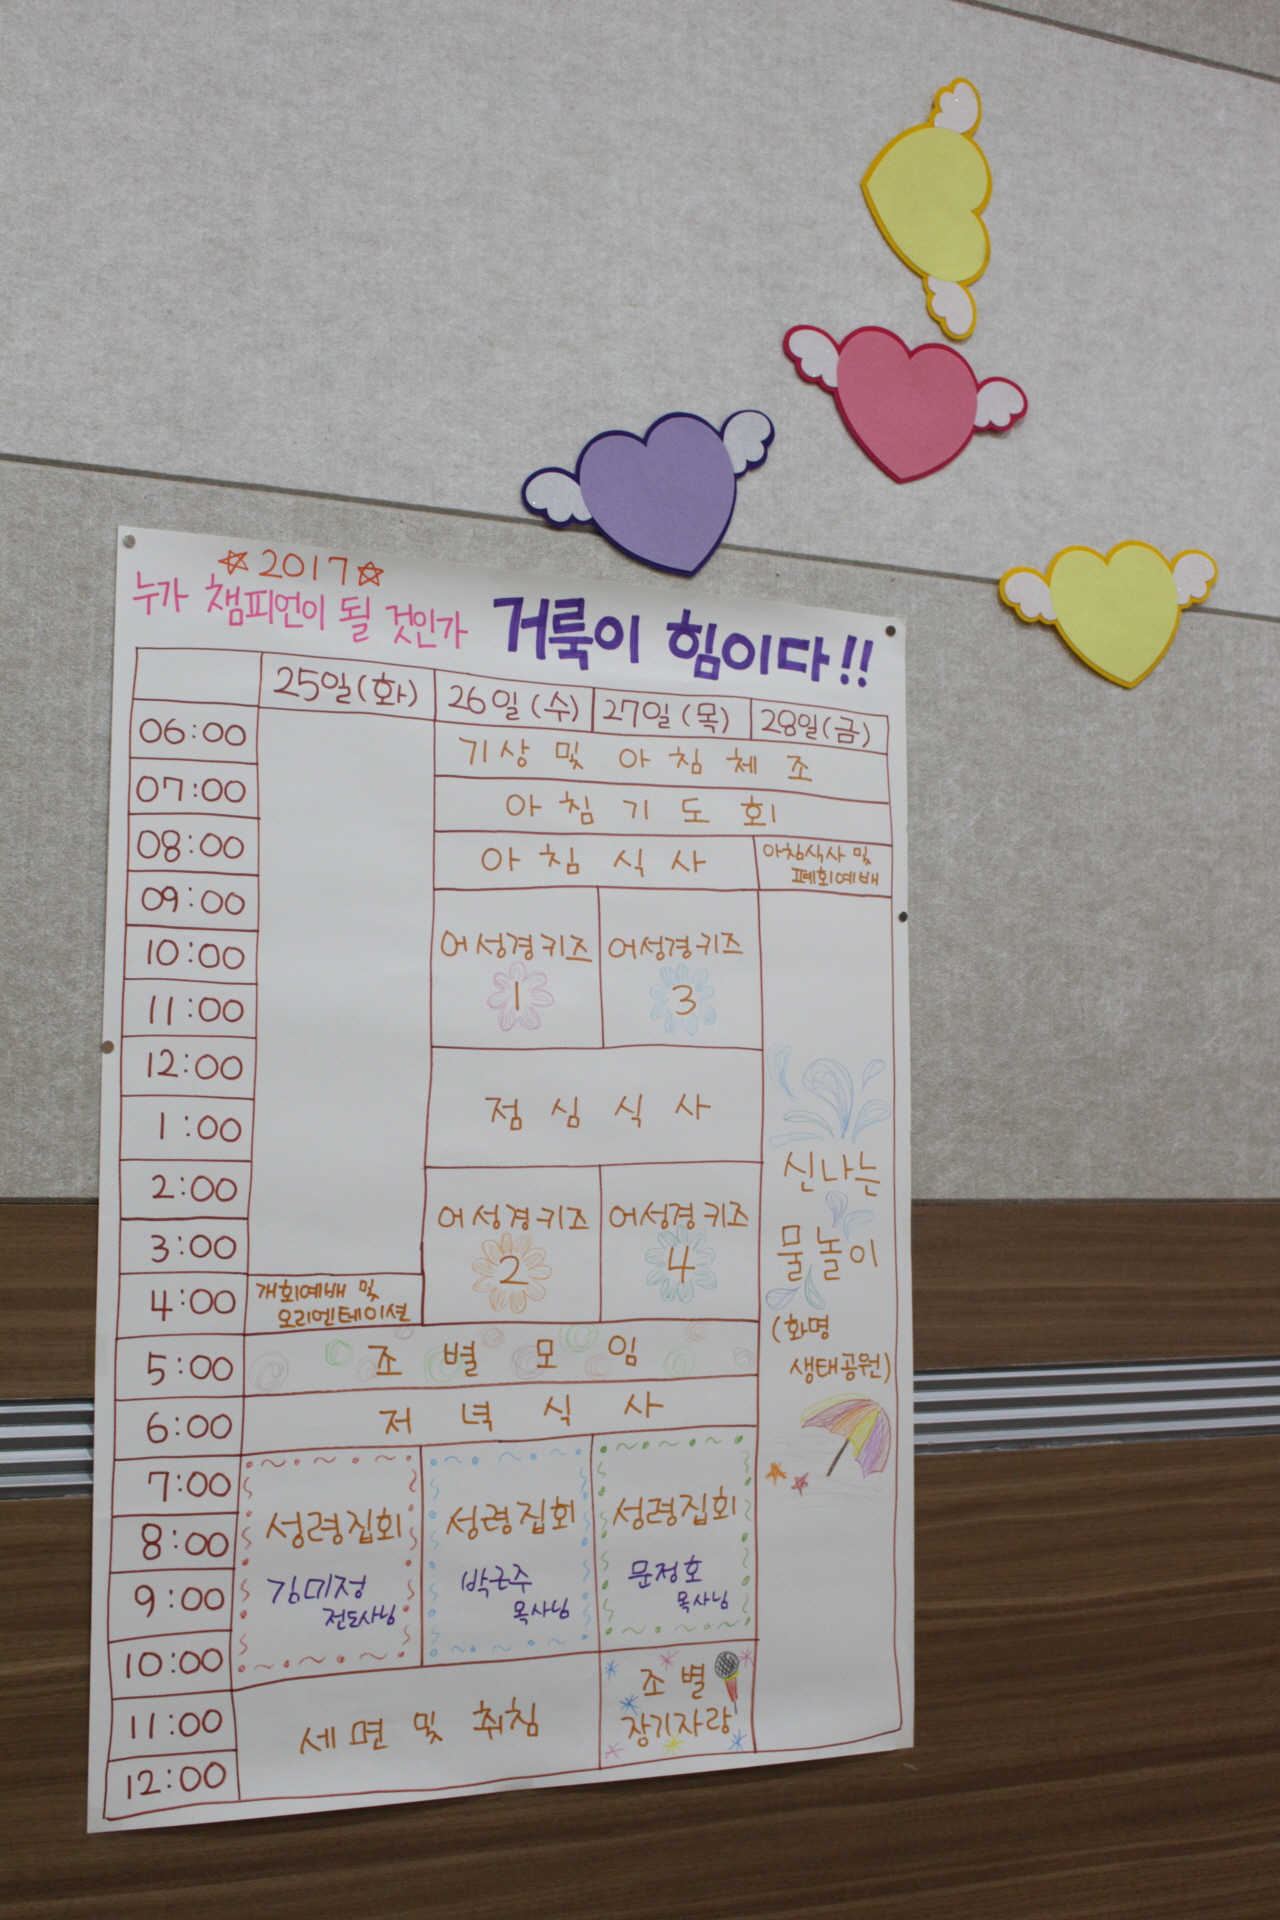 ☆2017☆
누가 챔피언이 될 것인가 거룩이 힘이다!!
25일(화) 26일(수) 27일(목) 28일(금)
06:00
기상 및 아침체조
07:00
아침기도회
08:00
아침식사
아침식사 및
폐회예배
09:00
10:00
어성경키즈 어성경키즈
1 3
11:00
12:00
1:00
점심식사
2:00
신나는
물놀이
(화명
생태공원)
3:00
어성경키즈 어성경키즈
2 4
4:00
개회예배 및
오리엔테이션
5:00
조별모임
6:00
저녁식사
7:00
8:00
성령집회 성령집회 성령집회
9:00
김미정 박근주 문정호
전도사님 목사님 목사님
10:00
조별
장기자랑
11:00
세면 및 취침
12:00